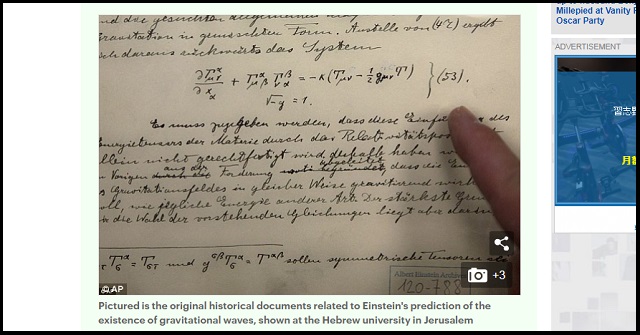 und die gesuchten allgemeinen
Gravitation in gemischter Form. Anstelle von (47) ergibt
sich daraus rückwärts das System
∂Γ^α_μν/∂x_α + Γ^α_μβ Γ^β_να = -κ(T_μν - 1/2 g_μν T) } (53).
√-g = 1.
Es muss zugegeben werden, dass diese Einführung des
Energietensors der Materie durch das Relativitätspostulat
allein nicht gerechtfertigt wird; deshalb haben
Vorigen aus der Forderung abgeleitet, dass die
des Gravitationsfeldes in gleicher Weise gravitierend
soll, wie jegliche Energie anderer Art. Der stärkste
die Wahl der vorstehenden Gleichungen liegt aber darin
und sollen symmetrische Tensoren
Albert Einstein Archives
120-788
© AP
+3
Pictured is the original historical documents related to Einstein's prediction of the
existence of gravitational waves, shown at the Hebrew university in Jerusalem
Millepied at Vanity F
Oscar Party
ADVERTISEMENT
習志野
月額